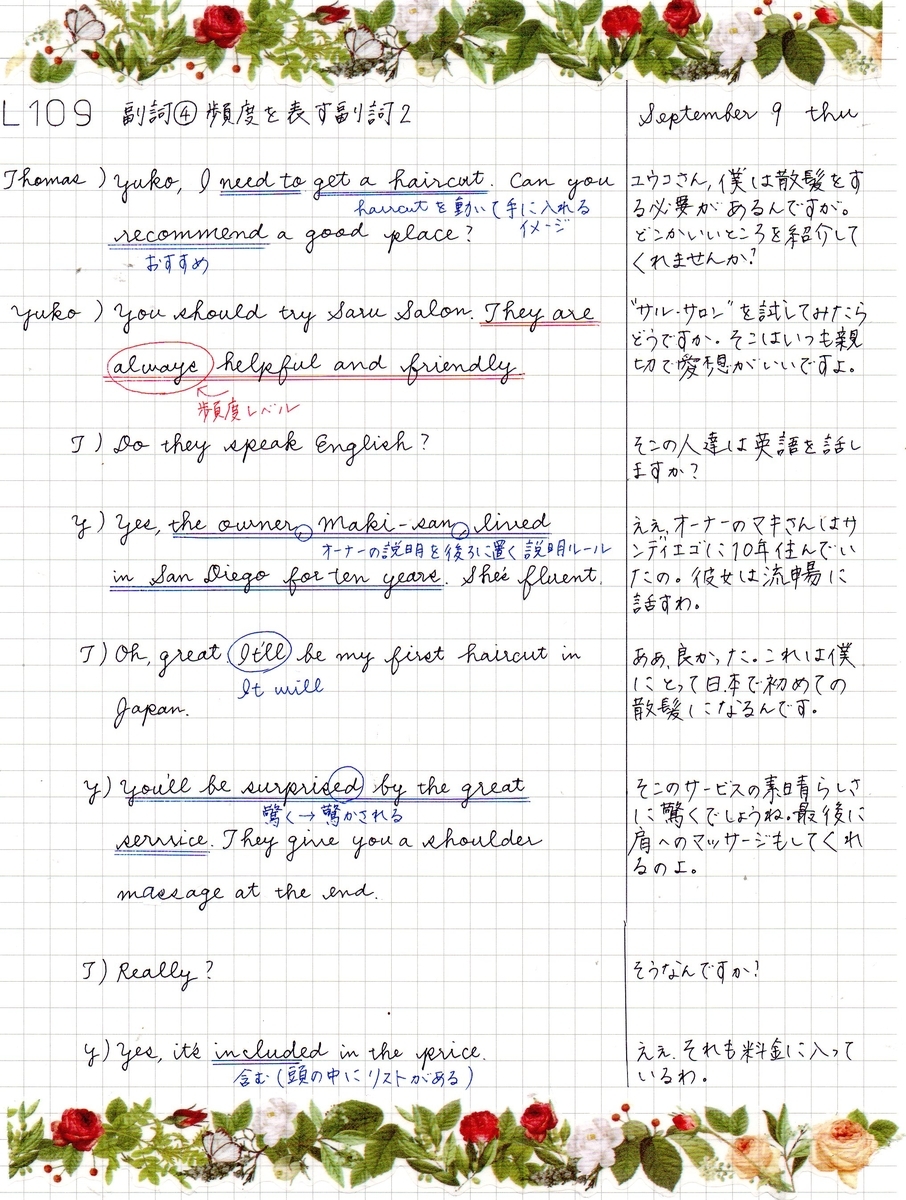 L109 副詞④頻度を表す副詞2
September 9 thu
Thomas) Yuko, I need to get a haircut. Can you
haircutを動いて手に入れる
イメージ
recommend a good place?
おすすめ
ユウコさん,僕は散髪をす
る必要があるんですが。
どこかいいところを紹介して
くれませんか?
Yuko) You should try Saru Salon. They are
always helpful and friendly
頻度レベル
"サル・サロン"を試してみたら
どうですか。そこはいつも親
切で愛想がいいですよ。
T) Do they speak English?
そこの人達は英語を話し
ますか?
Y) Yes, the owner, Maki-san, lived
オーナーの説明を後ろに置く説明ルール
in San Diego for ten years. She's fluent.
ええ,オーナーのマキさんはサ
ンディエゴに10年住んでい
たの。彼女は流暢に
話すわ。
T) Oh, great. It'll be my first haircut in
It will
Japan.
ああ,良かった。これは僕
にとって日本で初めての
散髪になるんです。
Y) You'll be surprised by the great
驚く→驚かされる
service. They give you a shoulder
massage at the end.
そこのサービスの素晴らしさ
に驚くでしょうね。最後に
肩へのマッサージもしてくれ
るのよ。
T) Really?
そうなんですか?
Y) Yes, it's included in the price.
含む(頭の中にリストがある)
ええ,それも料金に入って
いるわ。